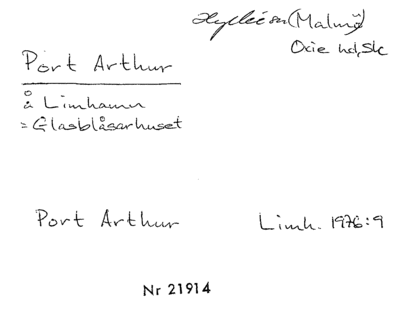 Hyllie sn (Malmö)
Oxie hd, Sk
Port Arthur
å Limhamn
= Glasblåsarhuset
Port Arthur Limh. 1976:9
Nr 21914